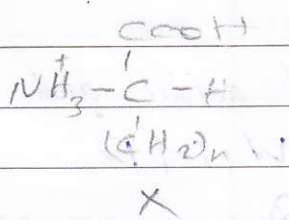 COOH
NH₃⁺-C-H
(CH₂)n
X